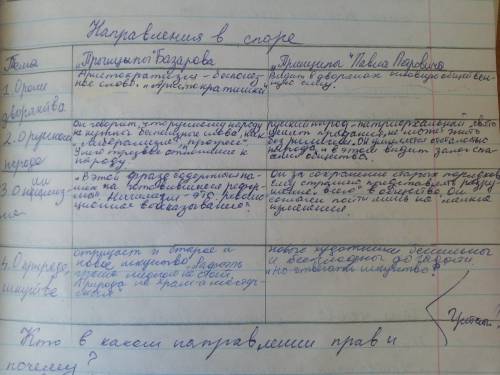 Направления в споре
Тема
"Принципы" Базарова
"Принципы" Павла Петровича
1. О роли
дворянства
Аристократизм - бесполез-
ное слово. "Аристократишки"
Видит в дворянах главную обществен-
ную силу.
2. О русском
народе
Он говорит, что русскому народу
не нужны бесполезные слова, как
"либерализм", "прогресс".
У него трезвое отношение к
народу.
русский народ - патриархальный, свято
ценит предания, не может жить
без религии. Он умиляется отсталостью
народа и в этом видит залог спа-
сения общества.
3. О нигилиз
ме
"В этой фразе содержится на-
мек на готовившиеся рефор-
мы. Нигилизм - это револю-
ционное высказывание."
Он за сохранение старых порядков
ему страшно представлять разру-
шение "всего" в обществе. Он
согласен пойти лишь на "мелкие
изменения.
4. О природе,
искусстве.
отрицает и старое и
новое искусство. "Рафаэль
гроша медного не стоит,
Природа не храм а мастер-
ская"
новые художники бессильны
и бесплодны до гадости
Но отстаивает искусство!
Устный?
Кто в каком направлении прав и
почему?